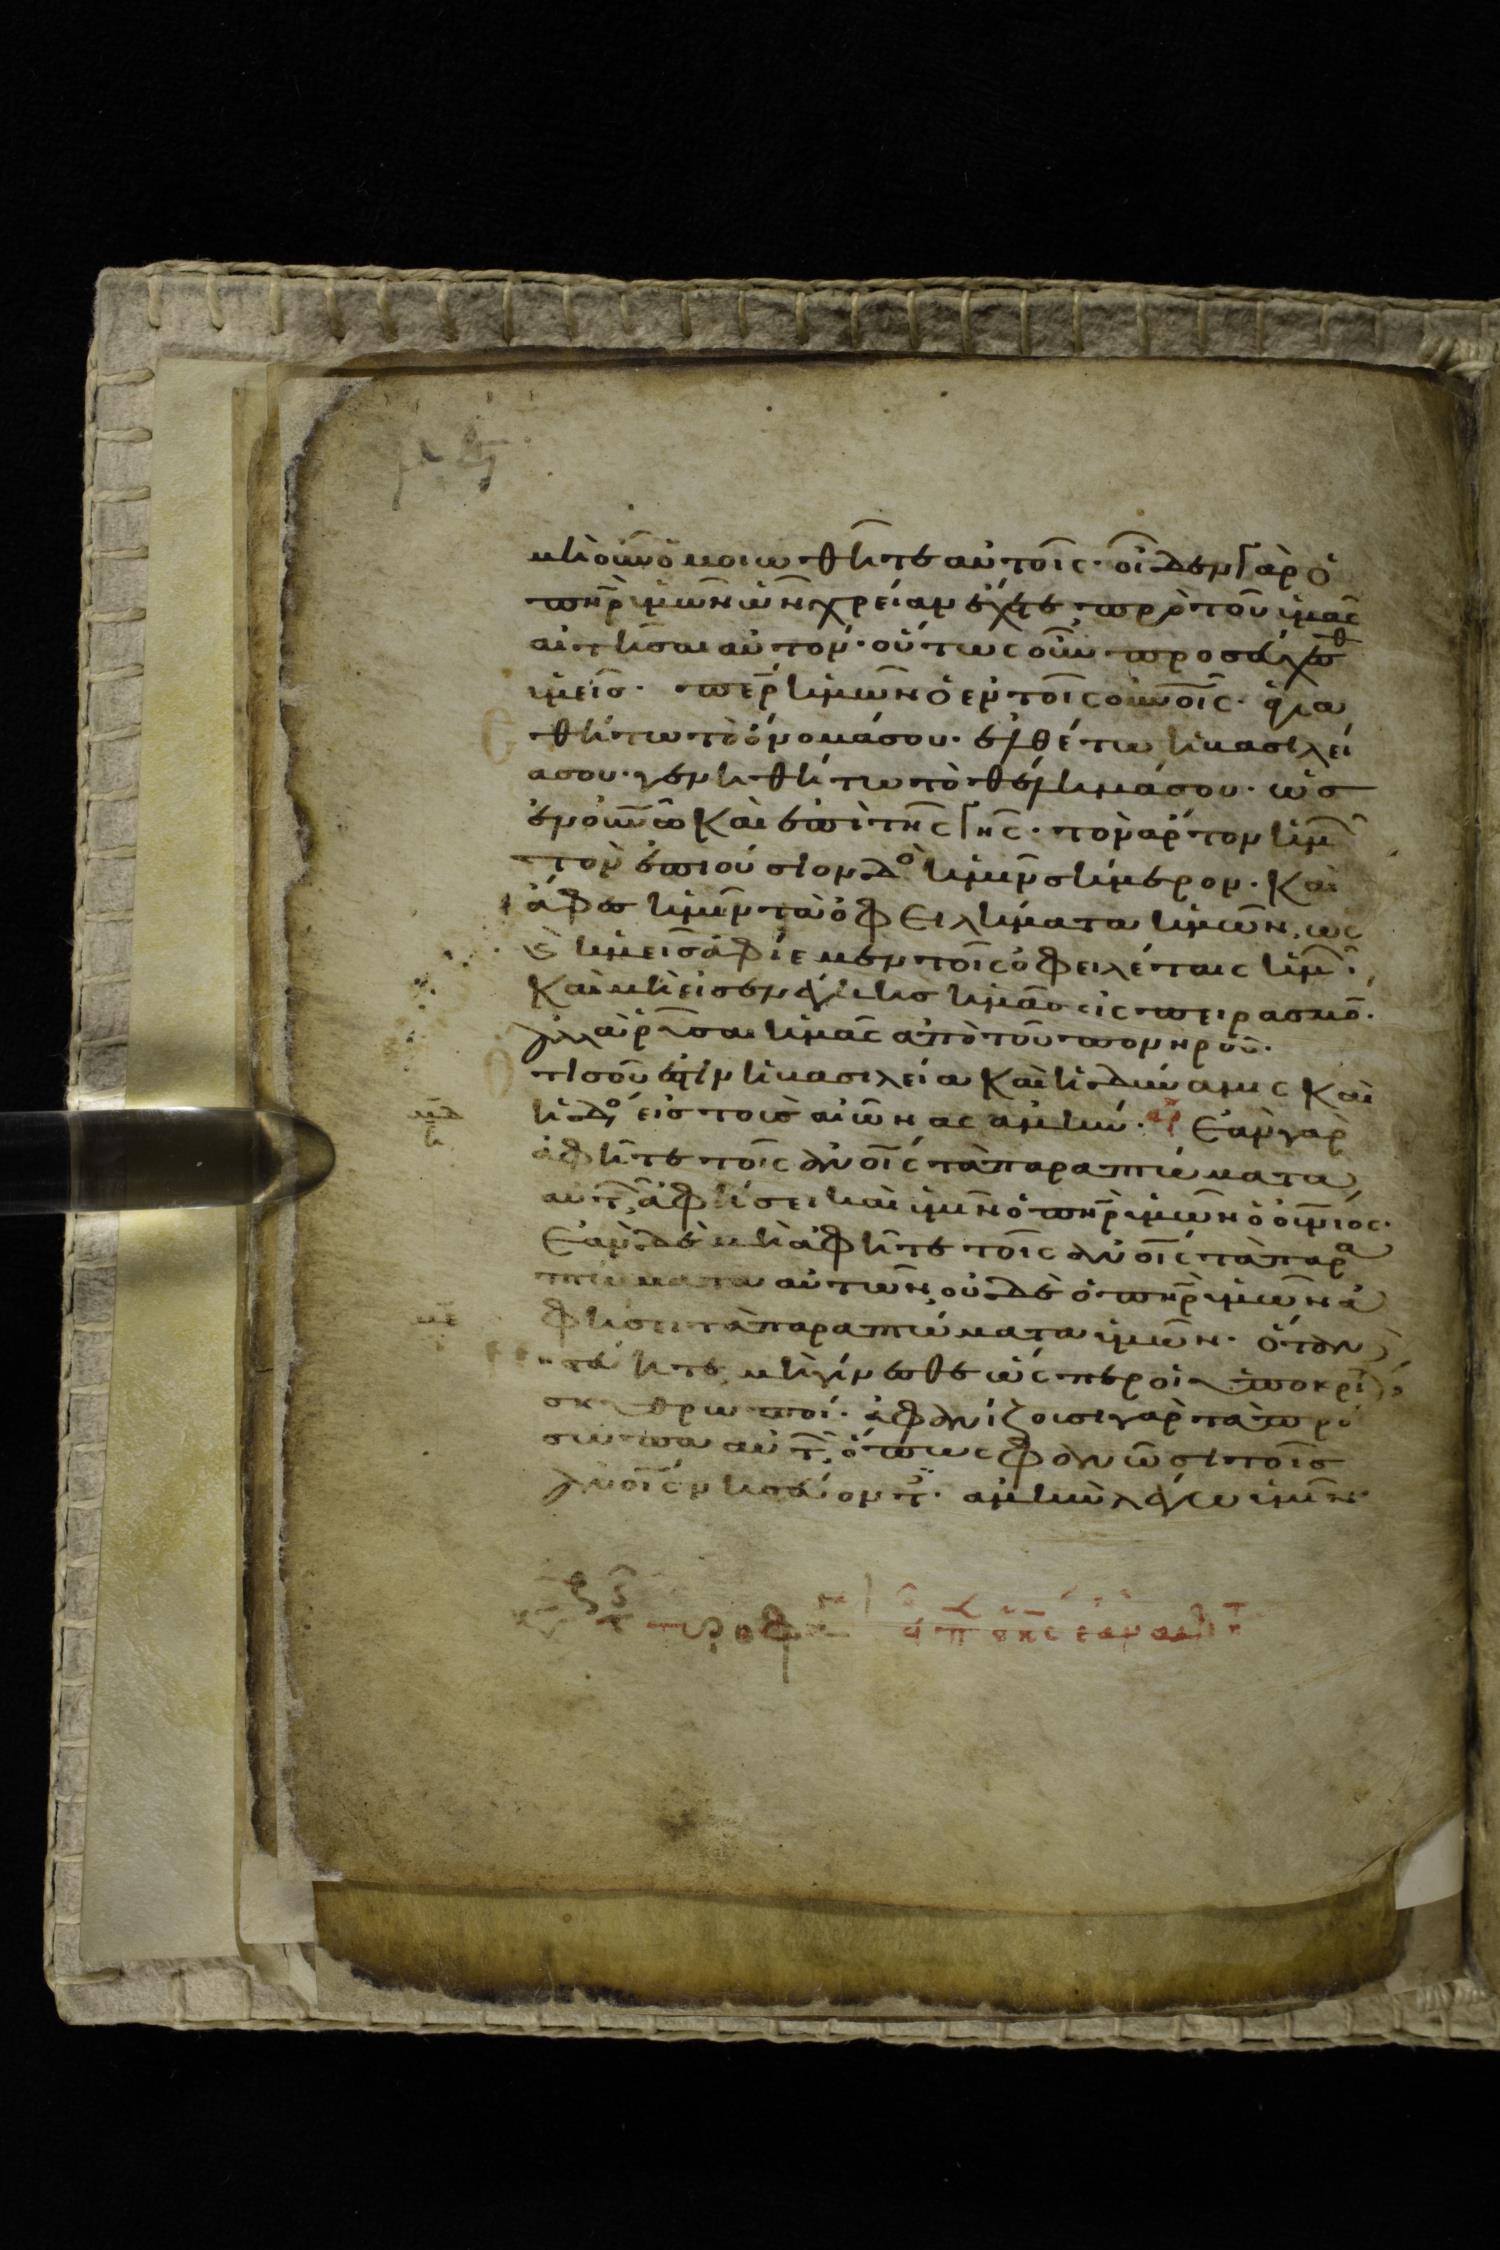 μὴ οὖν ὁμοιωθῆτε αὐτοῖς· οἶδεν γὰρ ὁ
πηρ ὑμῶν ὧν χρείαν ἔχετε πρὸ τοῦ ὑμᾶς
αἰτῆσαι αὐτόν· οὕτως οὖν προσεύχεσθ
ὑμεῖς· περ ἡμῶν ὁ ἐν τοῖς οὐνοῖς· ἁγια
θήτω τὸ ὄνομά σου· ἐλθέτω ἡ βασιλεί
α σου· γενηθήτω τὸ θέλημά σου· ὡς
ἐν οὐνω καὶ ἐπὶ τῆς γῆς· τὸν ἄρτον ἡμ
τὸν ἐπιούσιον δο ἡμῖν σήμερον· καὶ
ἄφες ἡμῖν τὰ ὀφειλήματα ἡμῶν, ὡς
καὶ ἡμεῖς ἀφίεμεν τοῖς ὀφειλέταις ἡμ·
καὶ μὴ εἰσενέγκῃς ἡμᾶς εἰς πειρασμό·
ἀλλὰ ῥῦσαι ἡμᾶς ἀπὸ τοῦ πονηροῦ·
ὅτι σοῦ ἐστιν ἡ βασιλεία καὶ ἡ δύναμις καὶ
ἡ δο εἰς τοὺς αἰῶνας ἀμήν· ἀρ Ἐὰν γὰρ
ἀφῆτε τοῖς ἀνοις τὰ παραπτώματα
αὐτ, ἀφήσει καὶ ὑμῖν ὁ πηρ ὑμῶν ὁ οὐνιος·
Ἐὰν δὲ μὴ ἀφῆτε τοῖς ἀνοις τὰ παρα
πτώματα αὐτῶν, οὐδὲ ὁ πηρ ὑμῶν ἀ
φήσει τὰ παραπτώματα ὑμῶν· Ὅταν
νηστεύητε, μὴ γίνεσθε ὥσπερ οἱ ὑποκριταὶ
σκυθρωποί· ἀφανίζουσι γὰρ τὰ πρό
σωπα αὐτ, ὅπως φανῶσι τοῖς
ἀνοις νηστεύοντ· ἀμὴν λέγω ὑμῖν